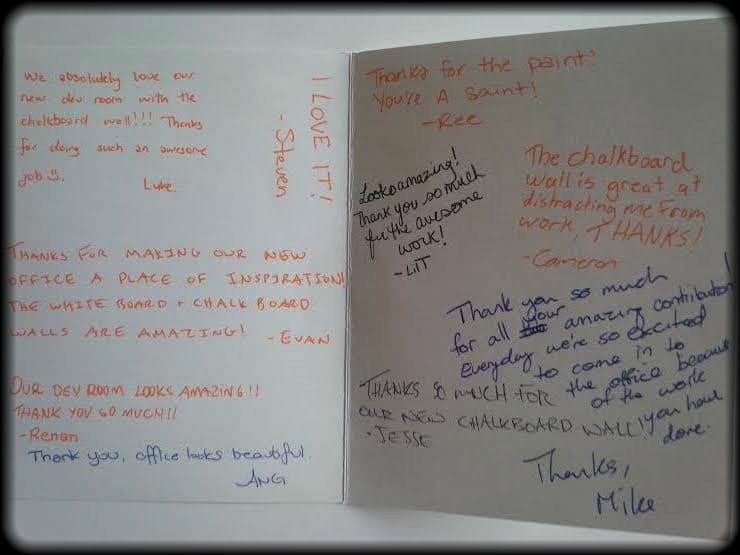 We absolutely love our
new dev room with the
chalkboard wall!!! Thanks
for doing such an awesome
job☺.
Luke.
I LOVE IT!
-Steven
THANKS FOR MAKING OUR NEW
OFFICE A PLACE OF INSPIRATION!
THE WHITE BOARD + CHALK BOARD
WALLS ARE AMAZING! -EVAN
OUR DEV ROOM LOOKS AMAZING!!
THANK YOU SO MUCH!!
-Renan
Thank you, office looks beautiful.
ANG
Thanks for the paint!
You're A saint!
-Ree
Looks amazing!
Thank you so much
for the awesome
work!
-LiT
The chalkboard
wall is great at
distracting me from
work, THANKS!
-Cameron
Thank you so much
for all your amazing contribution!
Everyday we're so excited
to come in to
the office because
of the work
you have
done.
Thanks,
Mike
THANKS SO MUCH FOR
OUR NEW CHALKBOARD WALL!
-JESSE